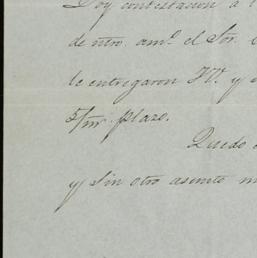 Doy contestacion á
de ntro. am.º el Sor.
le entregaron Vs. y
5/m. plazo.
Quedo
y sin otro asunto